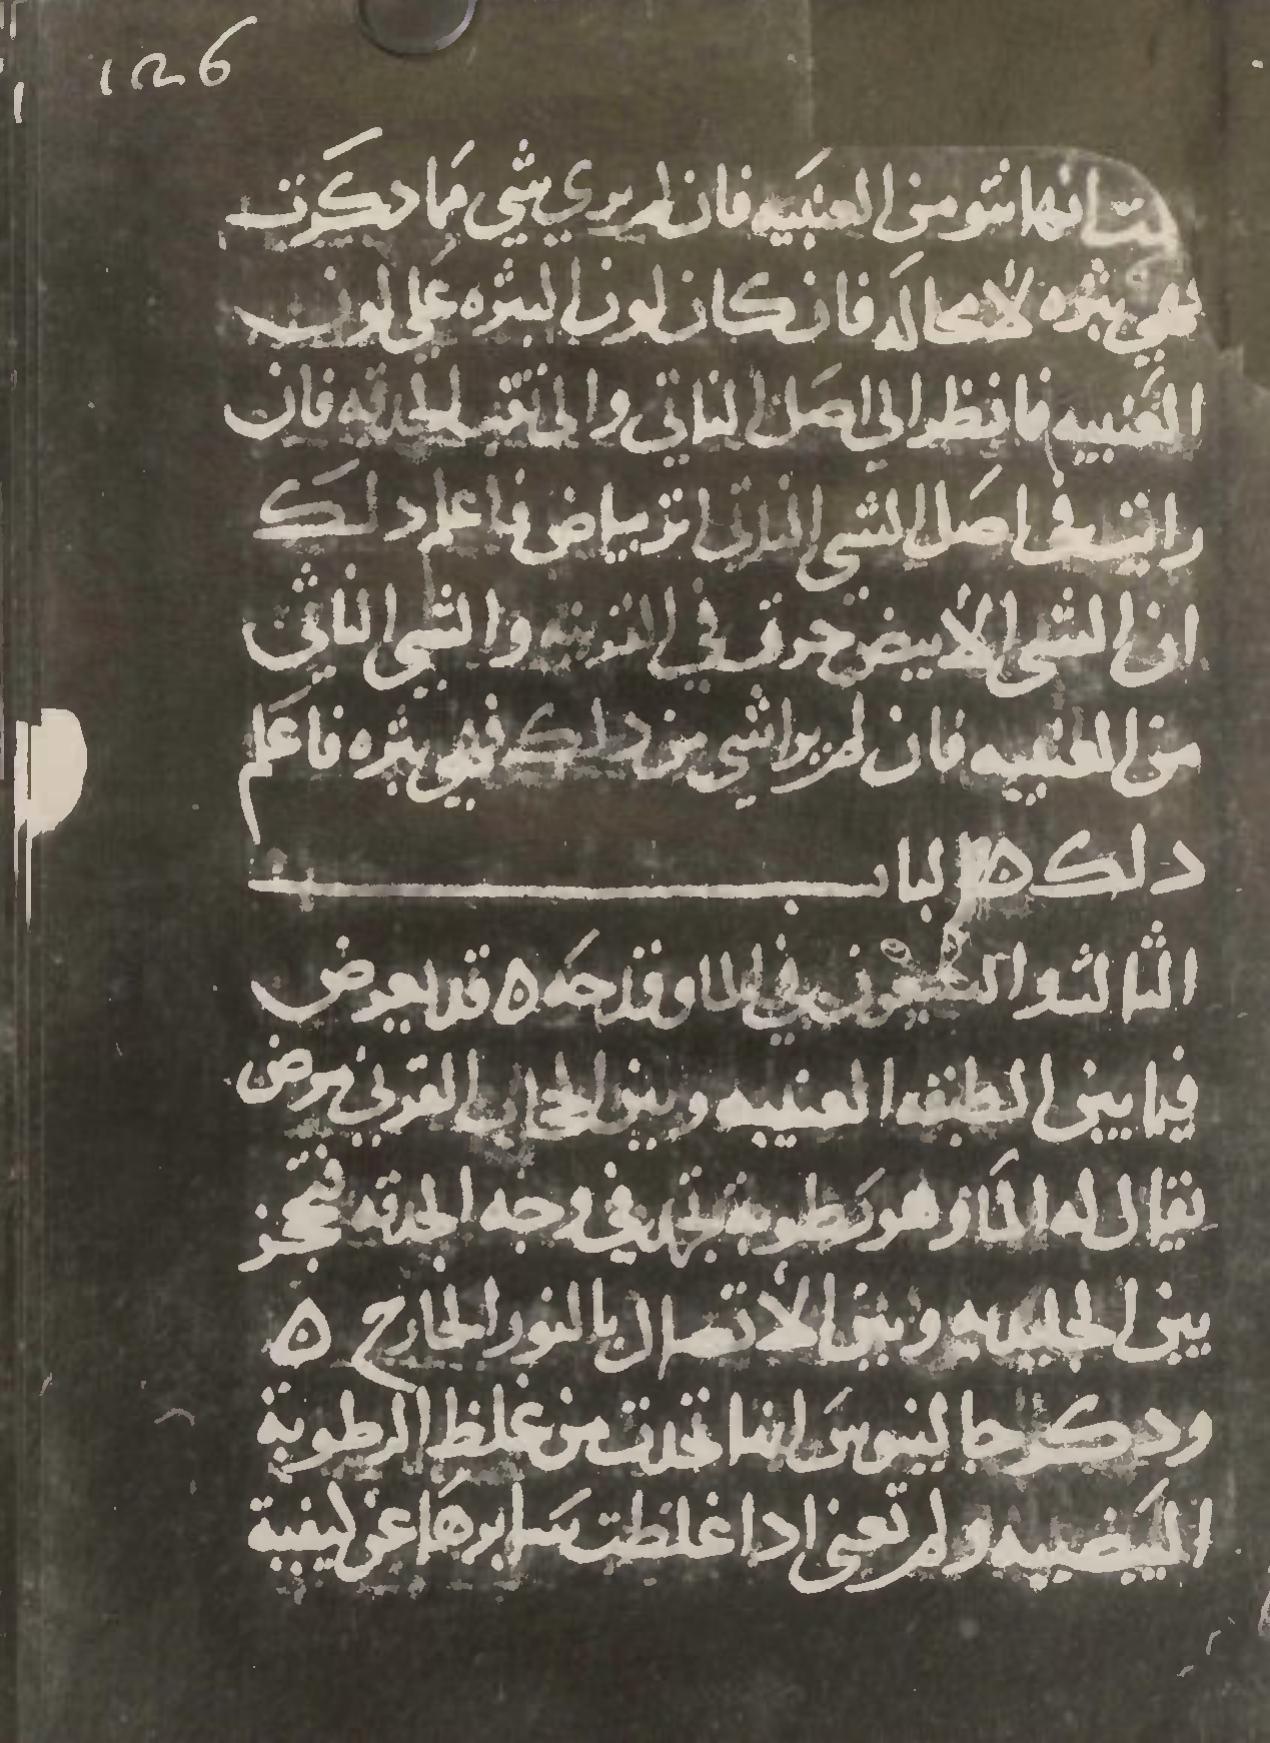 126
انها نتو من العنبيه فان لم يري شي مما دكرت
فهي بثره لا محاله فان كان لون البثره علي لون
العنبيه فانظر الي اصل الناتي والي ثقب الحدقه فان
رايت في اصل الشي الناتي اثر بياض فاعلم دلك
ان الشي الابيض خرق في القرنيه والشي الناتي
من العنبيه فان لم يرا شي من دلك فهي بثره فاعلم
دلك ه الباب
الثالث و في الما وقدحه ه قد يعرض
فيما بين الطبقه العنبيه وبين الحجاب القرني مرض
يقال له الما وهو رطوبة تجمد في وجه الحدقه فتحجز
بين الجليديه وبين الاتصال بالنور الخارج ه
ودكر جالينوس انها تحدث من غلظ الرطوبة
البيضيه ولم تعني ادا غلظت سايرها عن كيفية